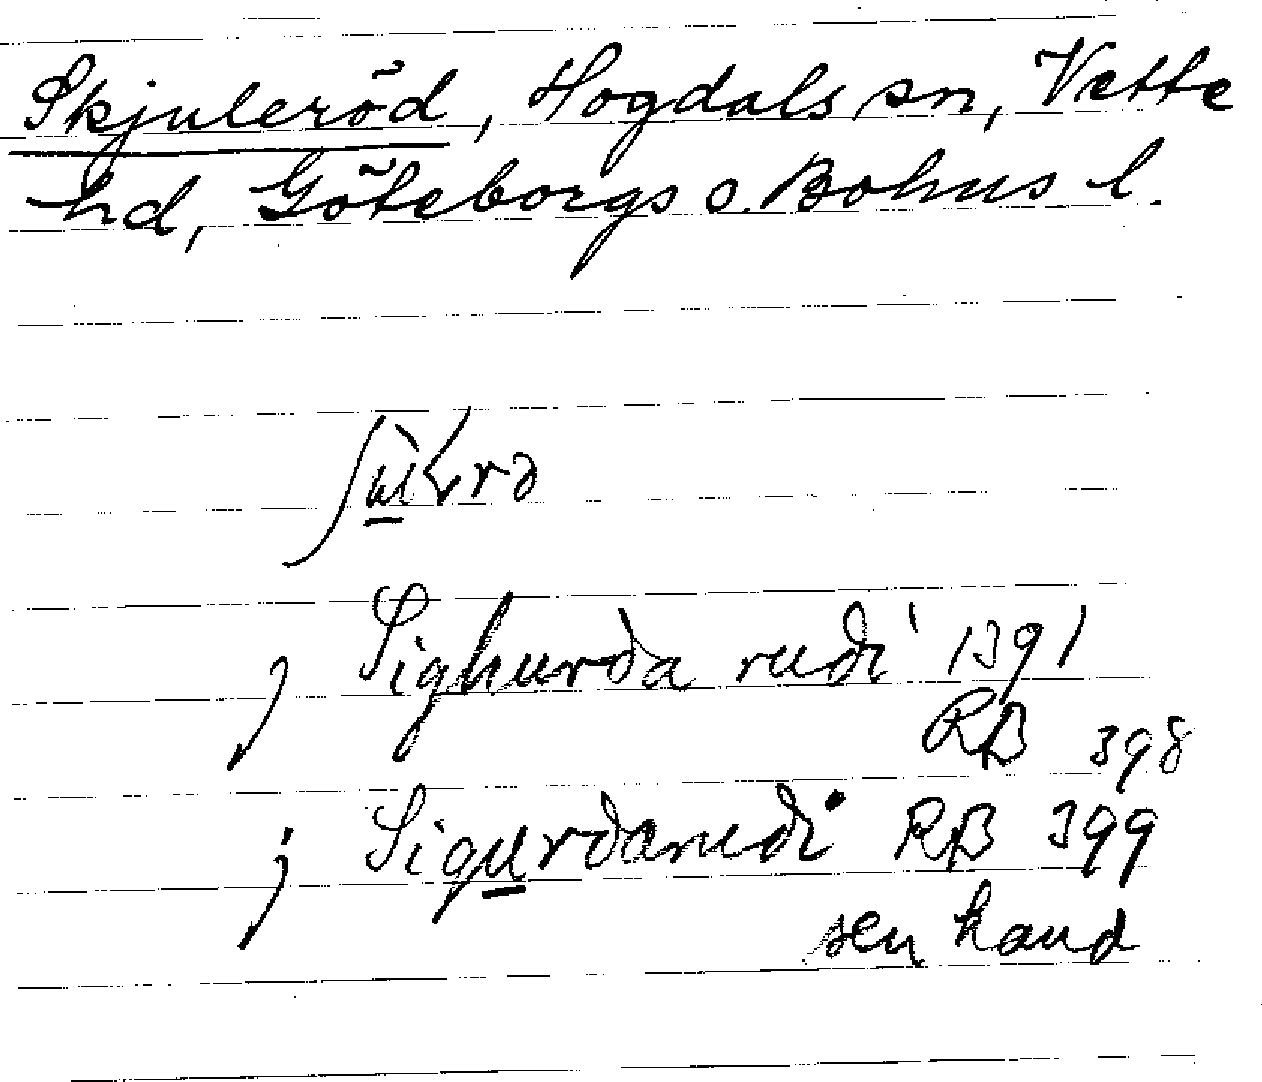 Skjuleröd, Hogdals sn, Vette
hd, Göteborgs o. Bohus l.
j Sighurða ruði 1391
RB 398
j Sigurðaruði RB 399
sen hand